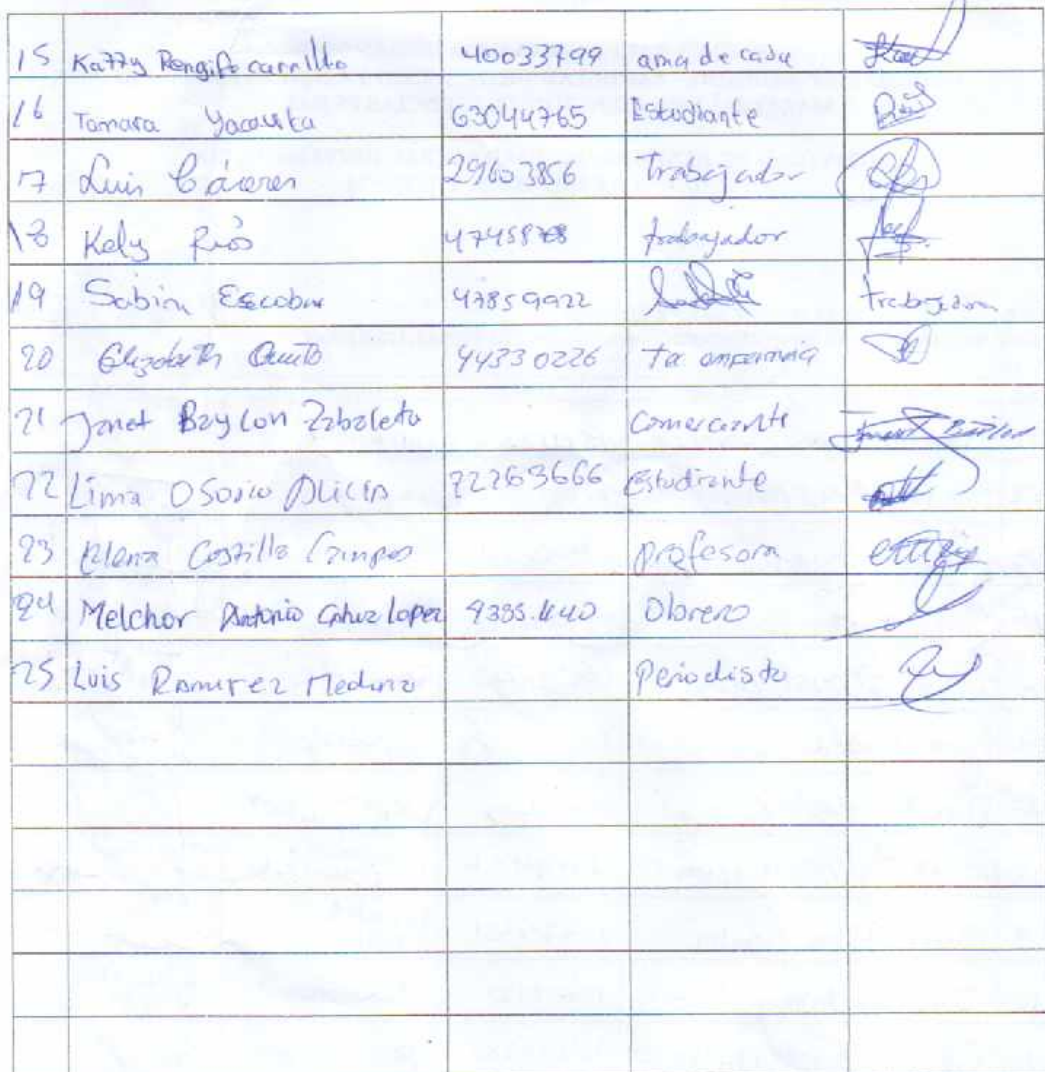 15 Katty Rengifo carrillo 40033799 ama de casa
16 Tamara Yacauta 63044765 Estudiante
17 Luis Cáceres 29603856 Trabajador
18 Kely Ríos 47458 trabajador
19 Sabin Escobar 47859922 Trabajadora
20 Elizabeth 44330226 Tec
21 Janet Baylon Zabaleta Comerciante
22 Lima Osorio Alicia 72263666 Estudiante
23 Elena Castillo Campos profesora
24 Melchor Antonio Lopez Obrero
25 Luis Ramirez Medina Periodista